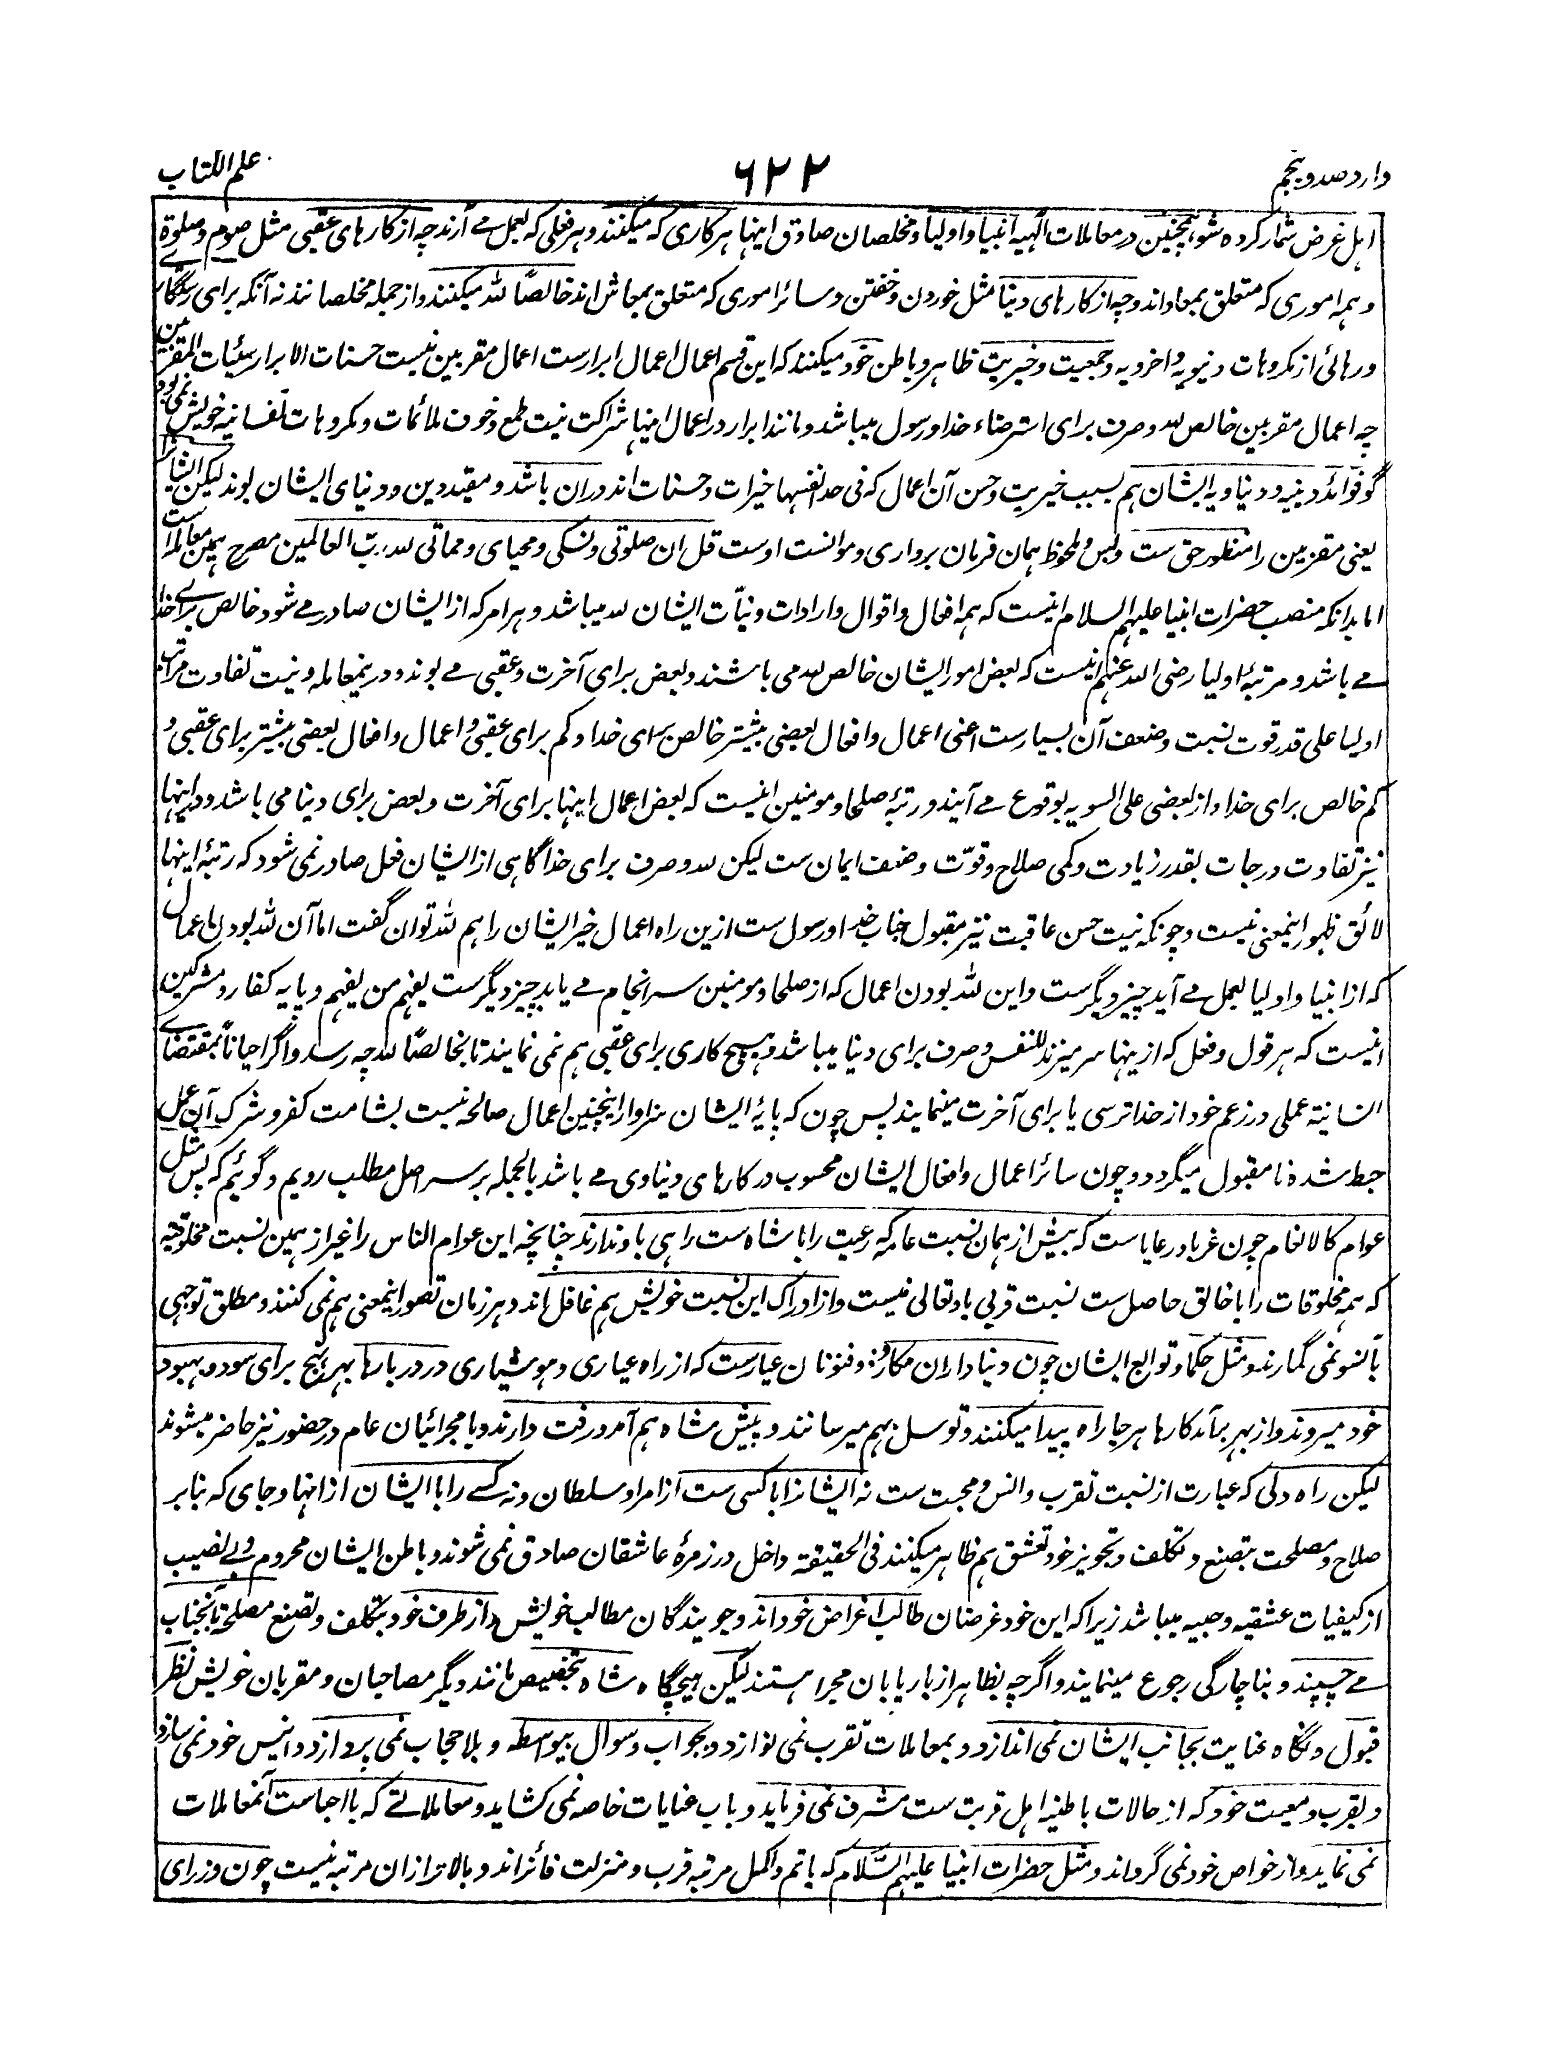 وارد صد و پنجم
۶۲۲
علم الکتاب
اہل غرض شمار کردہ شود ہمچنین در معاملات الٰہیہ انبیا و اولیا و مخلصان صادق اینہا ہر کاری کہ میکنند و ہر فعلی کہ بعمل مے آرند چہ از کارہای عقبی مثل صوم و صلوۃ
و ہمہ اموری کہ متعلق بمعاد اند و چہ از کارہای دنیا مثل خوردن و خفتن و سائر اموری کہ متعلق بمعاش اند خالصًا للہ میکنند و از جملہ مخلصانند نہ آنکہ برای رستگاری
و رہائی از مکروہات دنیویہ و اخرویہ و جمعیت و خیریت ظاہر و باطن خود میکنند کہ این قسم اعمال اعمال ابرارست اعمال مقربین نیست حسنات الابرار سیٔات المقربین
چہ اعمال مقربین خالص للہ و صرف برای استرضاء خدا و رسول میباشد و مانند ابرار در اعمال اینہا شراکت نیت طمع و خوف ملائمات و مکروہات نفسانیہ خویش نمی بود
گو فوائد دینیہ و دنیاویہ ایشان ہم بسبب خیریت و حسن آن اعمال کہ فی حد انفسہا خیرات و حسنات اند دران باشد و مفید دین و دنیای ایشان بوند لیکن ایشانرا
یعنی مقربین را منظور حق ست و بس و ملحوظ ہمان فرمان برداری و موانست اوست قل ان صلوتی و نسکی و محیای و مماتی للہ رب العالمین مصرح ہمین معاملہ است
اما بدانکہ منصب حضرات انبیا علیہم السلام اینست کہ ہمہ افعال و اقوال و ارادات و نیّات ایشان للہ میباشد و ہر امر کہ از ایشان صادر مے شود خالص برای خدا
مے باشد و مرتبۂ اولیا رضی اللہ عنہم اینست کہ بعض امور ایشان خالص للہ می باشند و بعض برای آخرت و عقبی مے بوند و درینمعاملہ و نیت تفاوت مراتب
اولیا علی قدر قوت نسبت و ضعف آن بسیارست اعنی اعمال و افعال بعضی بیشتر خالص برای خدا و کم برای عقبی و اعمال و افعال بعضی بیشتر برای عقبی و
کم خالص برای خدا و از بعضی علی السویہ بوقوع مے آیند و رتبۂ صلحا و مومنین اینست کہ بعض اعمال اینہا برای آخرت و بعض برای دنیا می باشد و در اینہا
نیز تفاوت درجات بقدر زیادت و کمی صلاح و قوّت و ضعف ایمان ست لیکن للہ و صرف برای خدا گاہی از ایشان فعل صادر نمی شود کہ رتبۂ اینہا
لائق ظہور اینمعنی نیست و چونکہ نیت حسن عاقبت نیز مقبول جناب خدا و رسول ست ازین راہ اعمال خیر ایشان را ہم للہ توان گفت اما آن للہ بودن اعمال
کہ از انبیا و اولیا بعمل مے آید چیز دیگرست و این للہ بودن اعمال کہ از صلحا و مومنین سرانجام مے یابد چیز دیگرست یفہم من یفہم و پایہ کفار و مشرکین
اینست کہ ہر قول و فعل کہ ازینہا سر میزند للنفس و صرف برای دنیا میباشد و ہیچ کاری برای عقبی ہم نمی نمایند تا بخالصًا للہ چہ رسد و اگر احیاناً بمقتضاے
انسانیتہ عملی در زعم خود از خدا ترسی یا برای آخرت مینمایند پس چون کہ پایۂ ایشان سزاوار اینچنین اعمال صالحہ نیست بشامت کفر و شرک آن عمل
حبط شدہ نامقبول میگردد و چون سائر اعمال و افعال ایشان محسوب در کارہای دنیاوی مے باشد بالجملہ بر سر اصل مطلب رویم و گوئیم کہ پس مثل
عوام کالانعام چون غربا و رعایاست کہ بیش از ہمان نسبت عامہ کہ رعیت را با شاہ ست راہی باو ندارند چنانچہ این عوام الناس را غیر از ہمین نسبت مخلوقیہ
کہ ہمہ مخلوقات را با خالق حاصل ست نسبت قربی باو تعالی نیست و از ادراک این نسبت خویش ہم غافل اند و ہر زمان تصور اینمعنی ہم نمی کنند و مطلق توجہی
بآنسو نمی گمارند و مثل حکما و توابع ایشان چون دنیاداران مکار و ذوفنونان عیارست کہ از راہ عیاری و ہوشیاری در دربارہا بہر نہج برای سود و بہبود
خود میروند و از بہر برآمد کارہا ہر جا راہ پیدا میکنند و توسل بہم میرسانند و پیش شاہ ہم آمد و رفت دارند و با مجرائیان عام در حضور نیز حاضر میشوند
لیکن راہ دلی کہ عبارت از نسبت تقرب و انس و محبت ست نہ ایشانرا با کسی ست از امرا و سلطان و نہ کسے را با ایشان ازانہا و جای کہ بنابر
صلاح و مصلحت بتصنع و تکلف و تجویز خود تعشق ہم ظاہر میکنند فی الحقیقۃ داخل در زمرۂ عاشقان صادق نمی شوند و باطن ایشان محروم و بے نصیب
از کیفیات عشقیہ و حبیہ میباشد زیرا کہ این خود غرضان طالب اغراض خود اند و جویندگان مطالب خویش و از طرف خود بتکلف و تصنع مصلحۃً بآنجناب
مے چسپند و بناچارگی رجوع مینمایند و اگرچہ بظاہر از باریابان مجرا ہستند لیکن ہیچگاہ شاہ بتخصیص مانند دیگر مصاحبان و مقربان خویش نظر
قبول و نگاہ عنایت بجانب ایشان نمی اندازد و بمعاملات تقرب نمی نوازد و بجواب و سوال بیواسطہ و بلاحجاب نمی پردازد و انیس خود نمی سازد
و بقرب و معیت خود کہ از حالات باطنیہ اہل قربت ست مشرف نمی فرماید و باب عنایات خاصہ نمی کشاید و معاملاتے کہ با احباست آنمعاملات
نمی نماید و از خواص خود نمی گرداند و مثل حضرات انبیا علیہم السّلام کہ باتم و اکمل مرتبہ قرب و منزلت فائز اند و بالاتر ازان مرتبہ نیست چون وزرای